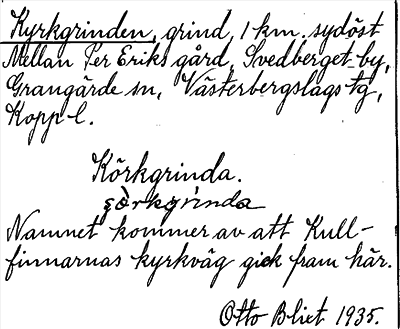 Kyrkgrinden, grind, 1 km. sydöst
Mellan Per Eriks gård, Svedberget by,
Grangärde sn, Västerbergslags tg,
Kopp l.
Körkgrinda.
Namnet kommer av att Kull-
finnarnas kyrkväg gick fram här.
Otto Blixt 1935.